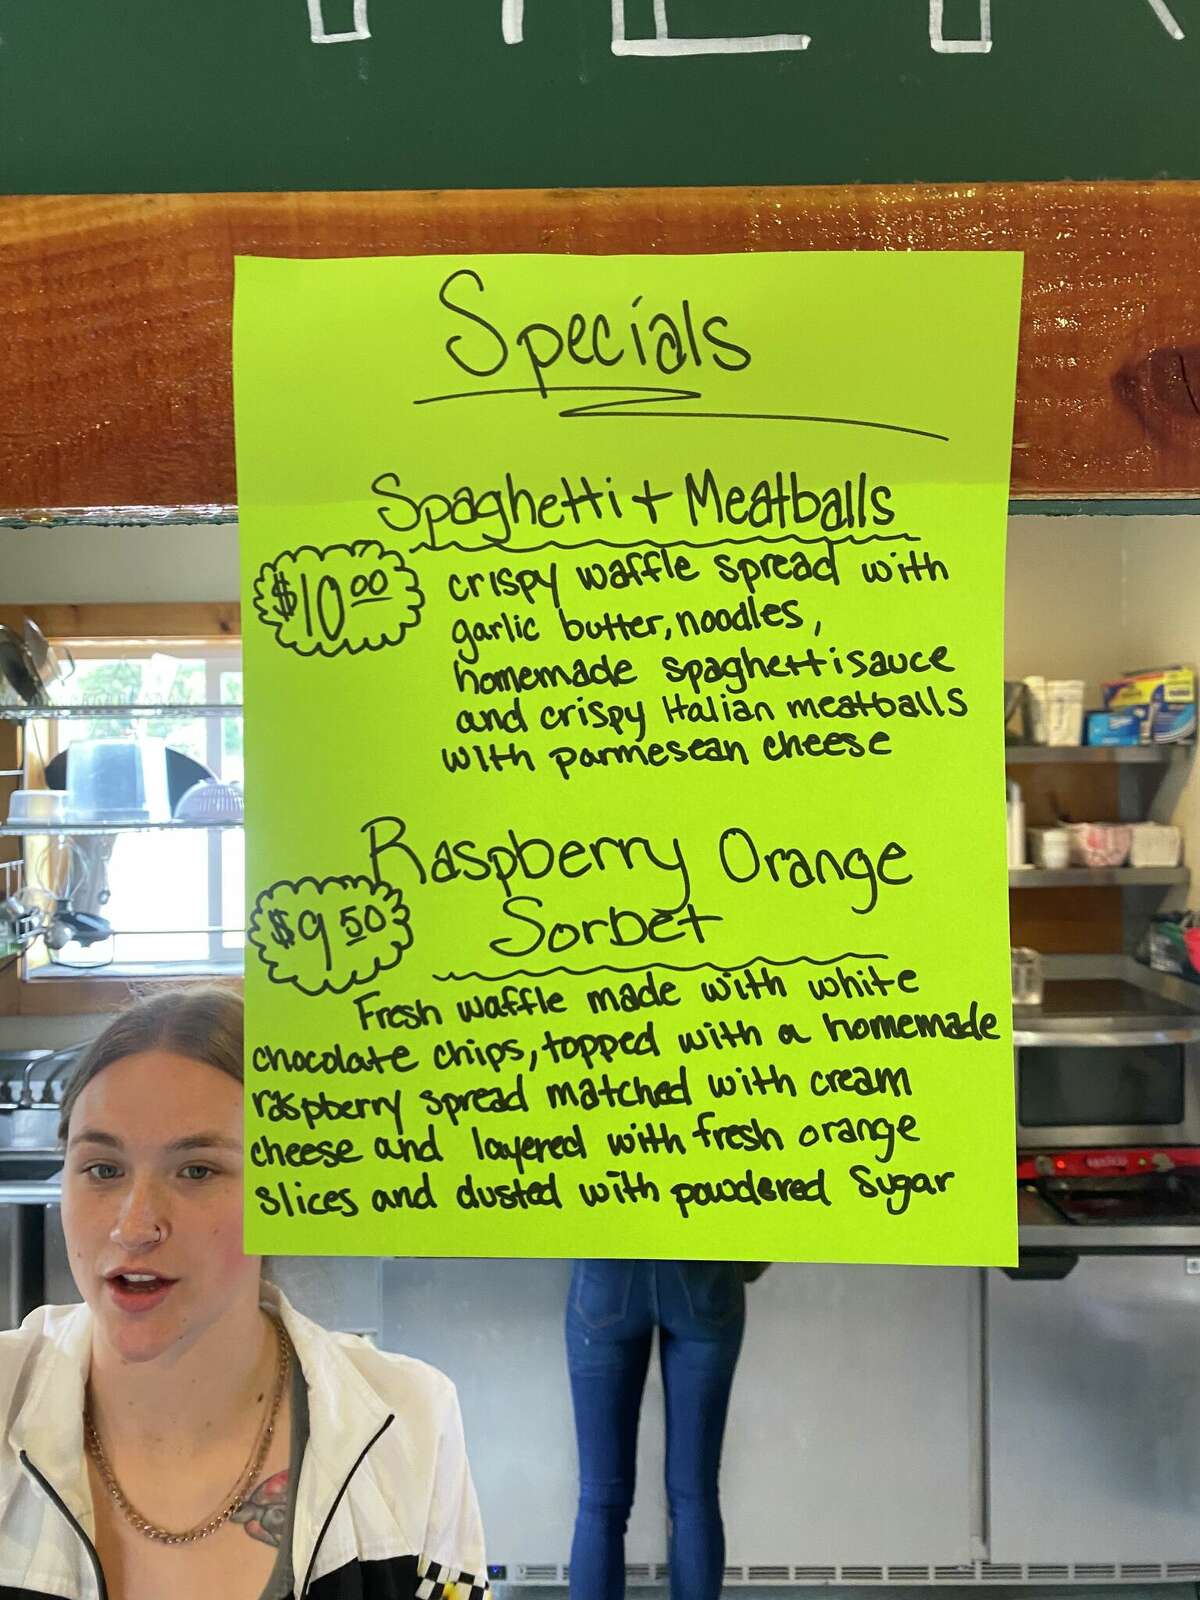 Specials
Spaghetti + Meatballs
$10.00
crispy waffle spread with
garlic butter, noodles,
homemade spaghetti sauce
and crispy Italian meatballs
with parmesean cheese
Raspberry Orange
$9.50
Sorbet
Fresh waffle made with white
chocolate chips, topped with a homemade
raspberry spread matched with cream
cheese and layered with fresh orange
slices and dusted with powdered sugar